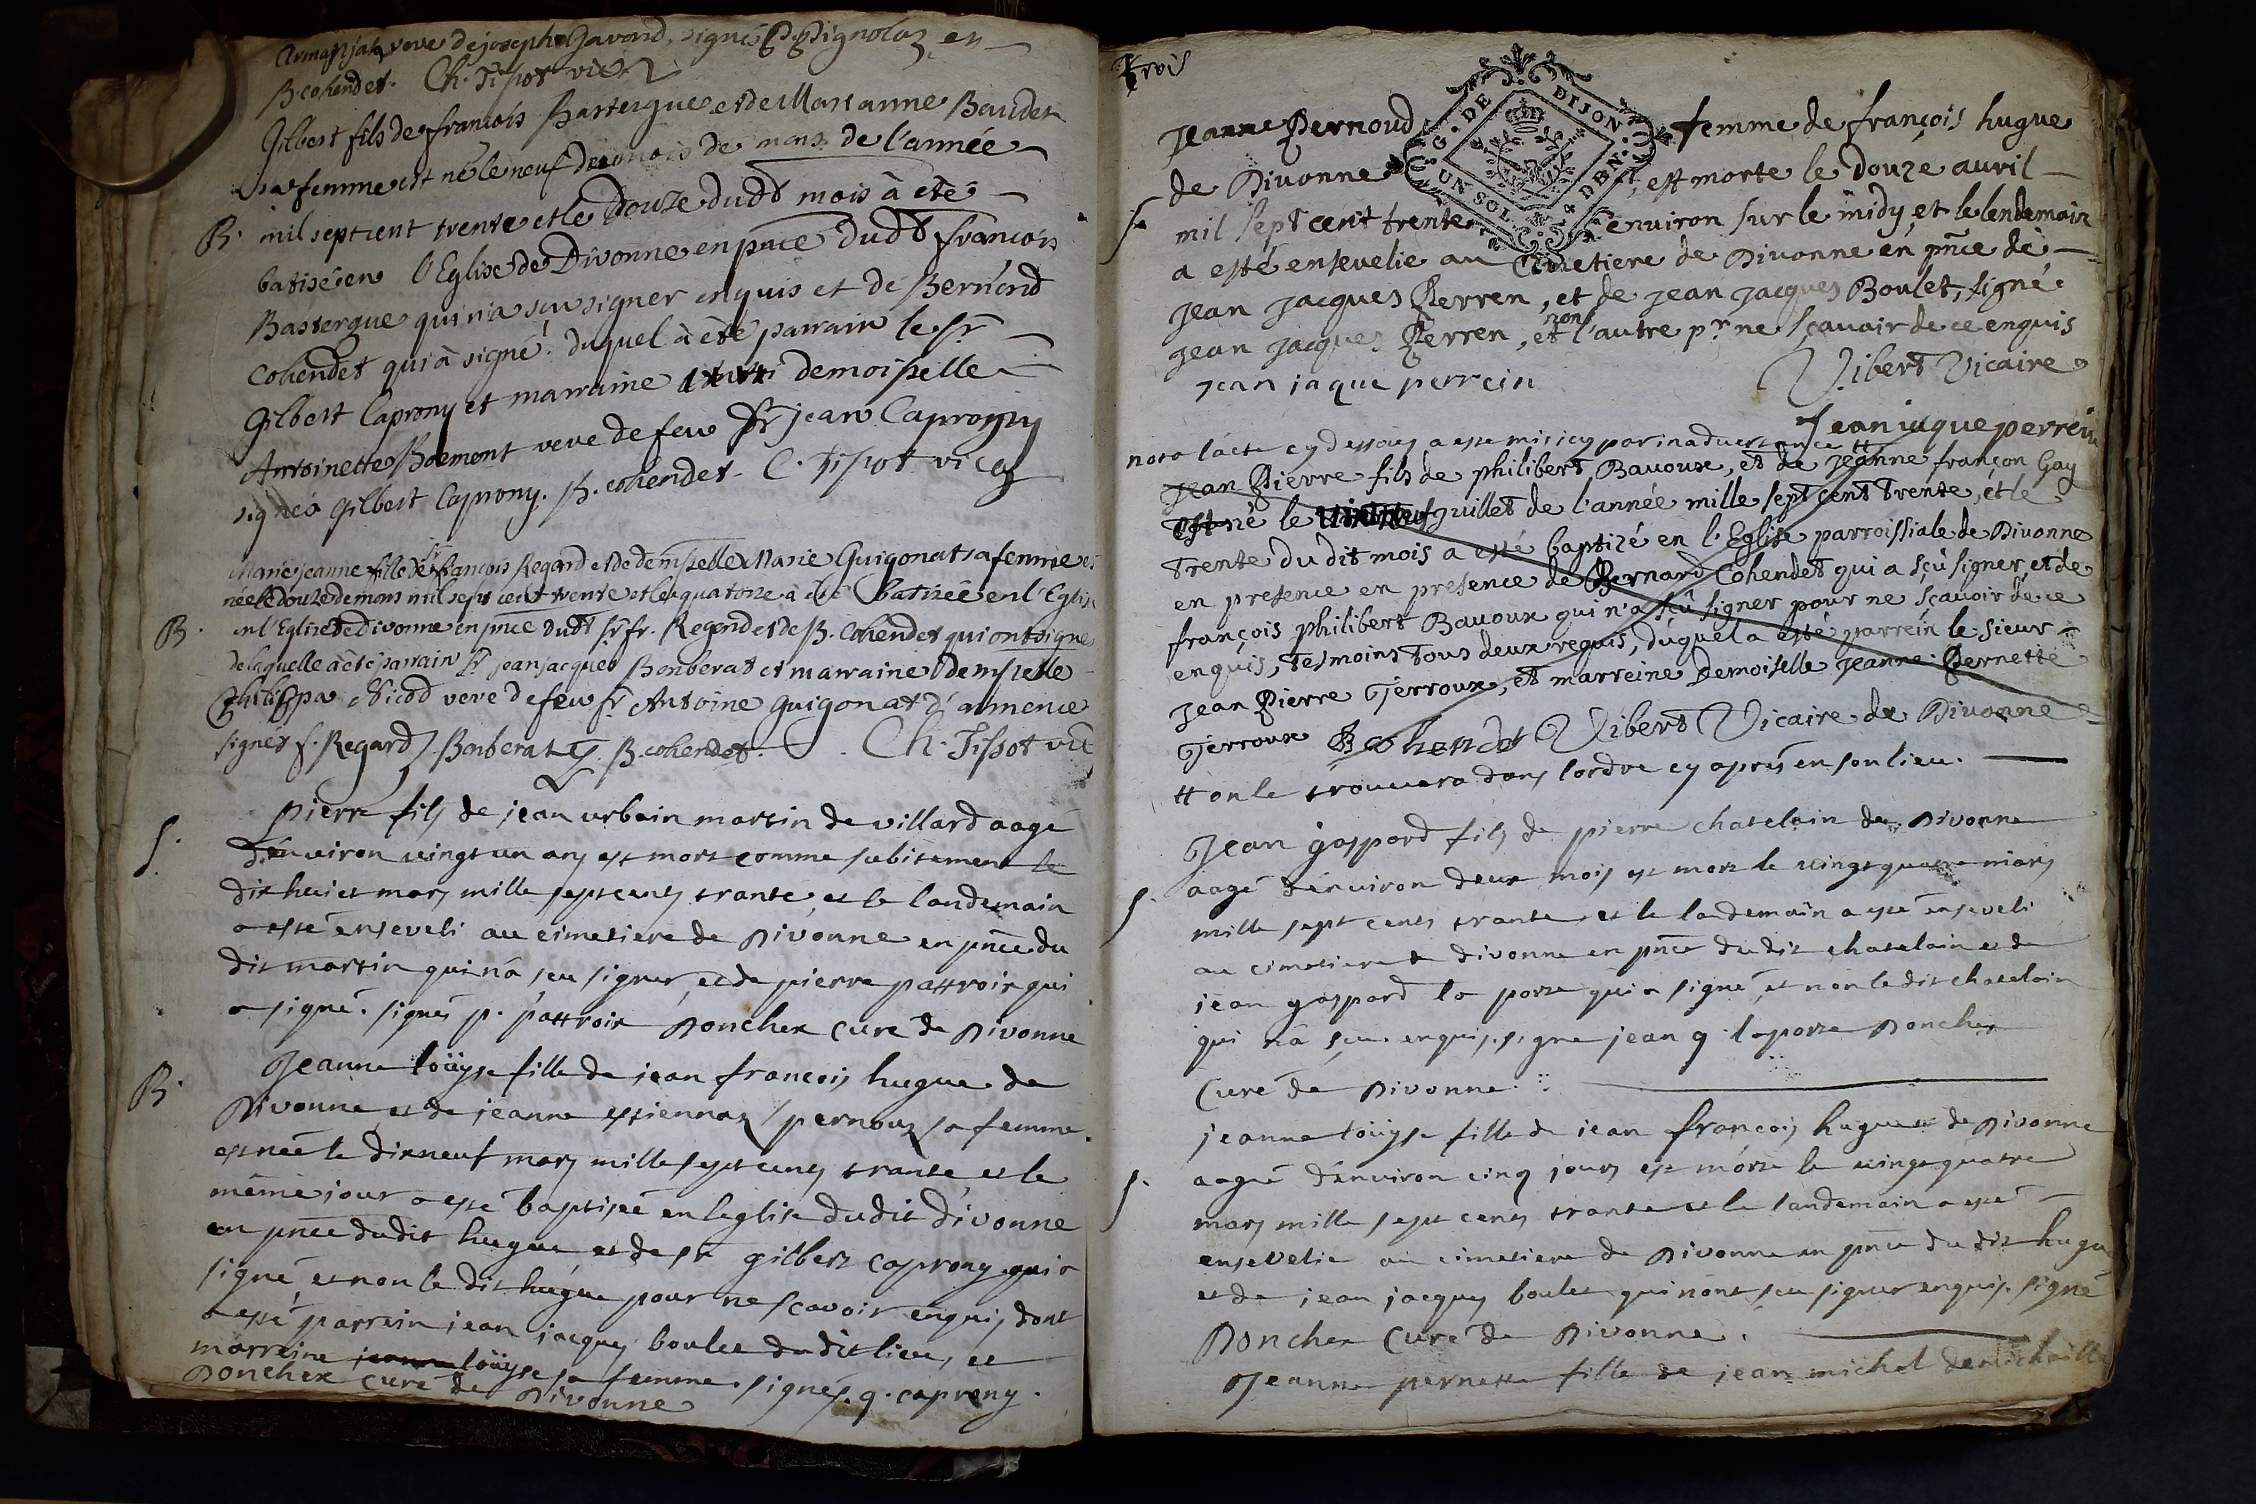 veve de joseph Gavard, signés en
B. cohendet. Ch. Tissot vic
Gilbert fils de francois Bastergue et de Marianne Baudet
sa femme est né le neuf du mois de mars de l'année
B. mil sept cent trente et le douze dudt mois à eté
batisé en l'Eglise de Divonne en pnce dudt francois
Bastergue qui n'a scu signer enquis et de Bernérd
Cohendet qui à signé. duquel à été parrain le sr
Gilbert Caprony et marraine demoiselle
Antoinette Boemont veve de feu sr jean Caprony
signés Gilbert Caprony. B. cohendet. C. Tissot vic
Marie jeanne fille de sr francois Regard et de demselle Marie Guigonat sa femme est
née le douze de mars mil sept cent trente et le quatorze à été batisée en l'Eglise
B. en l'Eglise de Divonne en pnce dudt sr fr. Regard et de B. Cohendet qui ont signes
de laquelle à été parrain sr jean jacques Bonberat et marraine demselle
Philippa Nicod veve de feu sr Antoine Guigonat d'
signés f. Regard. Bonberat. B. cohendet. Ch. Tissot vic
S. pierre fils de jean urbain martin de villard aagé
d'environ vingt un ans est mort comme subitement le
dix huict mars mille sept cents trante, et le landemain
a esté enseveli au cimetiere de Divonne en pnce du
dit martin qui n'a sçu signer, et de pierre pattroix qui
a signé. signés p. pattroix Donchex curé de Divonne
B. Jeanne loüyse fille de jean françois hugue de
Divonne et de jeanne estiennaz pernouz sa femme
est née le dixneuf mars mille sept cents trante et le
même jour a esté baptisée en l'eglise dudit divonne
en pnce dudit hugue, et de sr gilbert caprony qui a
signé, et non le dit hugue pour ne scavoir enquis, dont
a esté parrein jean jacques boulet du dit lieu, et
marraine jeanne loüyse sa femme. signés. g. caprony.
Donchex curé de Divonne
trois
G. DE DIJON
UN SOL 4 DEN.
Jeanne Pernoud femme de françois hugue
de Divonne, est morte le douze avril
S. mil sept cent trente environ sur le midy et le lendemain
a esté ensevelie au Cimetiere de Divonne en pnce de
Jean Jacques Perren, et de Jean Jacques Boulet, signé
Jean Jacques Perren, et non l'autre pr ne sçavoir de ce enquis
jean jaque perrein Vibert Vicaire
Jean jaque perrein
nota l'acte cy dessous a esté mis icy par inadvertance #
Jean Pierre fils de philibert Bavoux, et de Jeanne françon Gay
est né le juillet de l'année mille sept cent trente, et le
trente du dit mois a esté baptizé en l'Eglise parroissiale de Divonne
en presence en presence de Bernard Cohendet qui a sçû signer, et de
françois philibert Bavoux qui n'a sçû signer pour ne sçavoir de ce
enquis, tesmoins tous deux requis, duquel a esté parrein le sieur
Jean Pierre Gerroux, et marreine Demoiselle Jeanne Pernette
Gerroux B cohendet Vibert Vicaire de Divonne
# on le trouvera dans l'ordre cy après en son lieu.
Jean gaspard fils de pierre chatelain de Divonne
S. aagé d'environ deux mois est mort le vingt quatre mars
mille sept cents trante et le landemain a esté enseveli
au cimetiere de divonne en pnce du dit chatelain et de
jean gaspard la porte qui a signé, et non le dit chatelain
qui n'a sçu enquis. signe jean g. laporte Donchex
Curé de Divonne.
jeanne loüyse fille de jean françois hugue de Divonne
S. aagée d'environ cinq jours est morte le vingt quatre
mars mille sept cents trante et le landemain a esté
ensevelie au cimetiere de Divonne en pnce du dit hugue
et de jean jacques boulet qui n'ont sçu signer enquis. signé
Donchex Curé de Divonne.
Jeanne pernette fille de jean michel